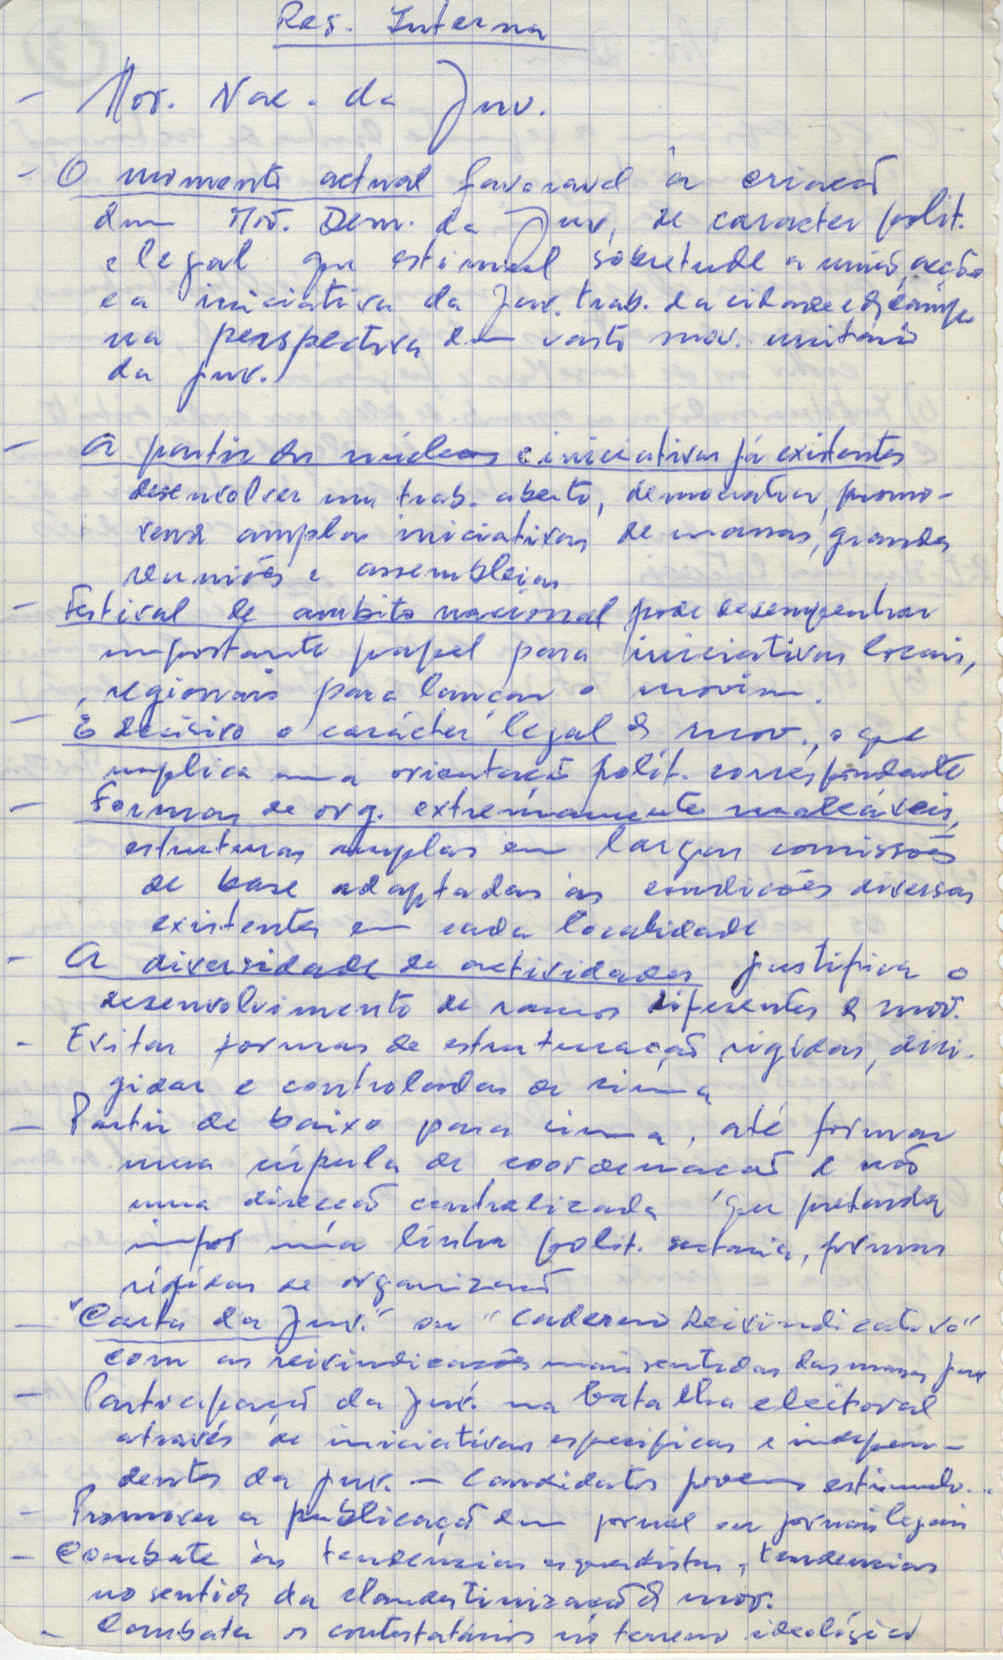 Res. Interna
- Mov. Nac. da Juv.
- O momento actual favoravel à criação
dum Mov. Dem. da Juv. de caracter polít.
e legal que estimule sobretudo a união, acção
e a iniciativa da Juv. trab. da cidade e do campo
na perspectiva dum vasto mov. unitário
da juv.
- A partir dos núcleos e iniciativas já existentes
desenvolver um trab. aberto, democrático, promo-
vendo amplas iniciativas de massas, grandes
reuniões e assembleias
- Festival de ambito nacional pode desempenhar
importante papel para iniciativas locais,
regionais para lançar o movim.
- É decisivo o carácter legal do mov., o que
implica uma orientação polít. correspondente
- Formas de org. extremamente maleáveis,
estruturas amplas em largas comissões
de base adaptadas às condições diversas
existentes em cada localidade
- A diversidade de actividades justifica o
desenvolvimento de ramos diferentes do mov.
- Evitar formas de estruturação rígidas, diri-
gidas e controladas de cima
- Partir de baixo para cima, até formar
uma cúpula de coordenação e não
uma direcção centralizada que pretenda
impor uma linha polít. sectária, formas
rígidas de organização
- "Carta da Juv." ou "Caderno Reivindicativo"
com as reivindicações mais sentidas das massas juv.
- Participação da juv. na batalha eleitoral
através de iniciativas específicas e indepen-
dentes da juv. - Candidatos jovens estimulo..
- Promover a publicação dum jornal ou jornais legais
- Combate às tendências esquerdistas, tendencias
no sentido da clandestinização do mov.
- Combater os contestatários no terreno ideológico